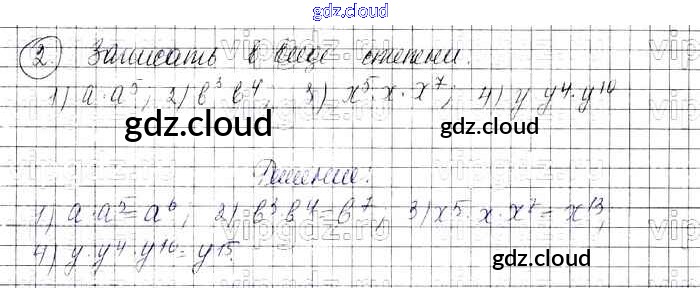 gdz.cloud
2) Записать в виде степени.
1) a·a⁵; 2) b³ b⁴; 3) x⁵·x·x⁷; 4) y y⁴·y¹⁰
gdz.cloud gdz.cloud
Решение:
1) a·a⁵=a⁶; 2) b³ b⁴=b⁷, 3) x⁵·x·x⁷=x¹³,
4) y·y⁴·y¹⁰=y¹⁵.
gdz.cloud gdz.cloud